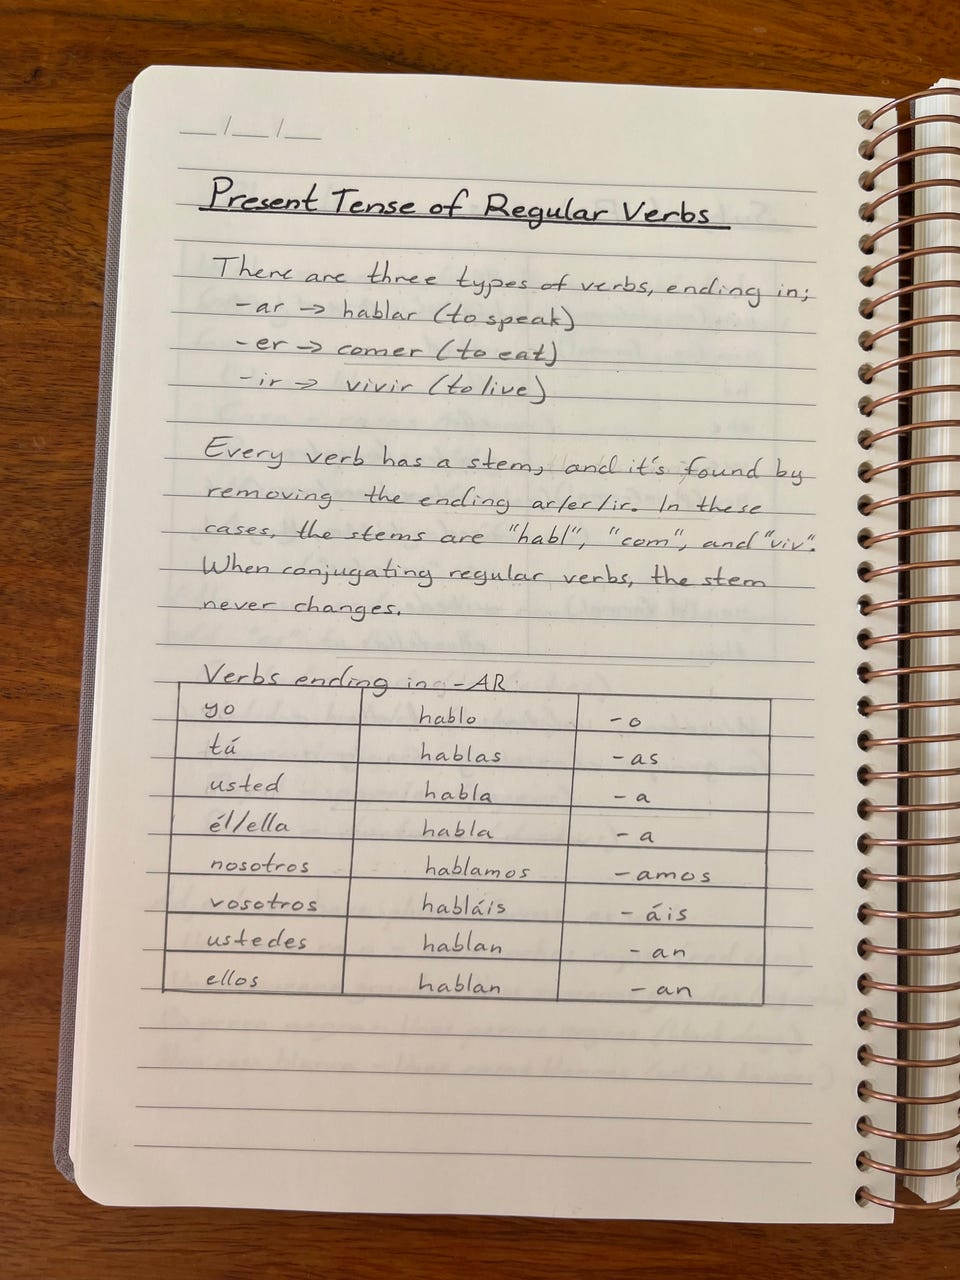 __/__/__
Present Tense of Regular Verbs
There are three types of verbs, ending in;
-ar → hablar (to speak)
-er → comer (to eat)
-ir → vivir (to live)
Every verb has a stem, and it's found by
removing the ending ar/er/ir. In these
cases, the stems are "habl", "com", and "viv".
When conjugating regular verbs, the stem
never changes.
Verbs ending in -AR
yo hablo -o
tú hablas -as
usted habla -a
él/ella habla -a
nosotros hablamos -amos
vosotros habláis -áis
ustedes hablan -an
ellos hablan -an